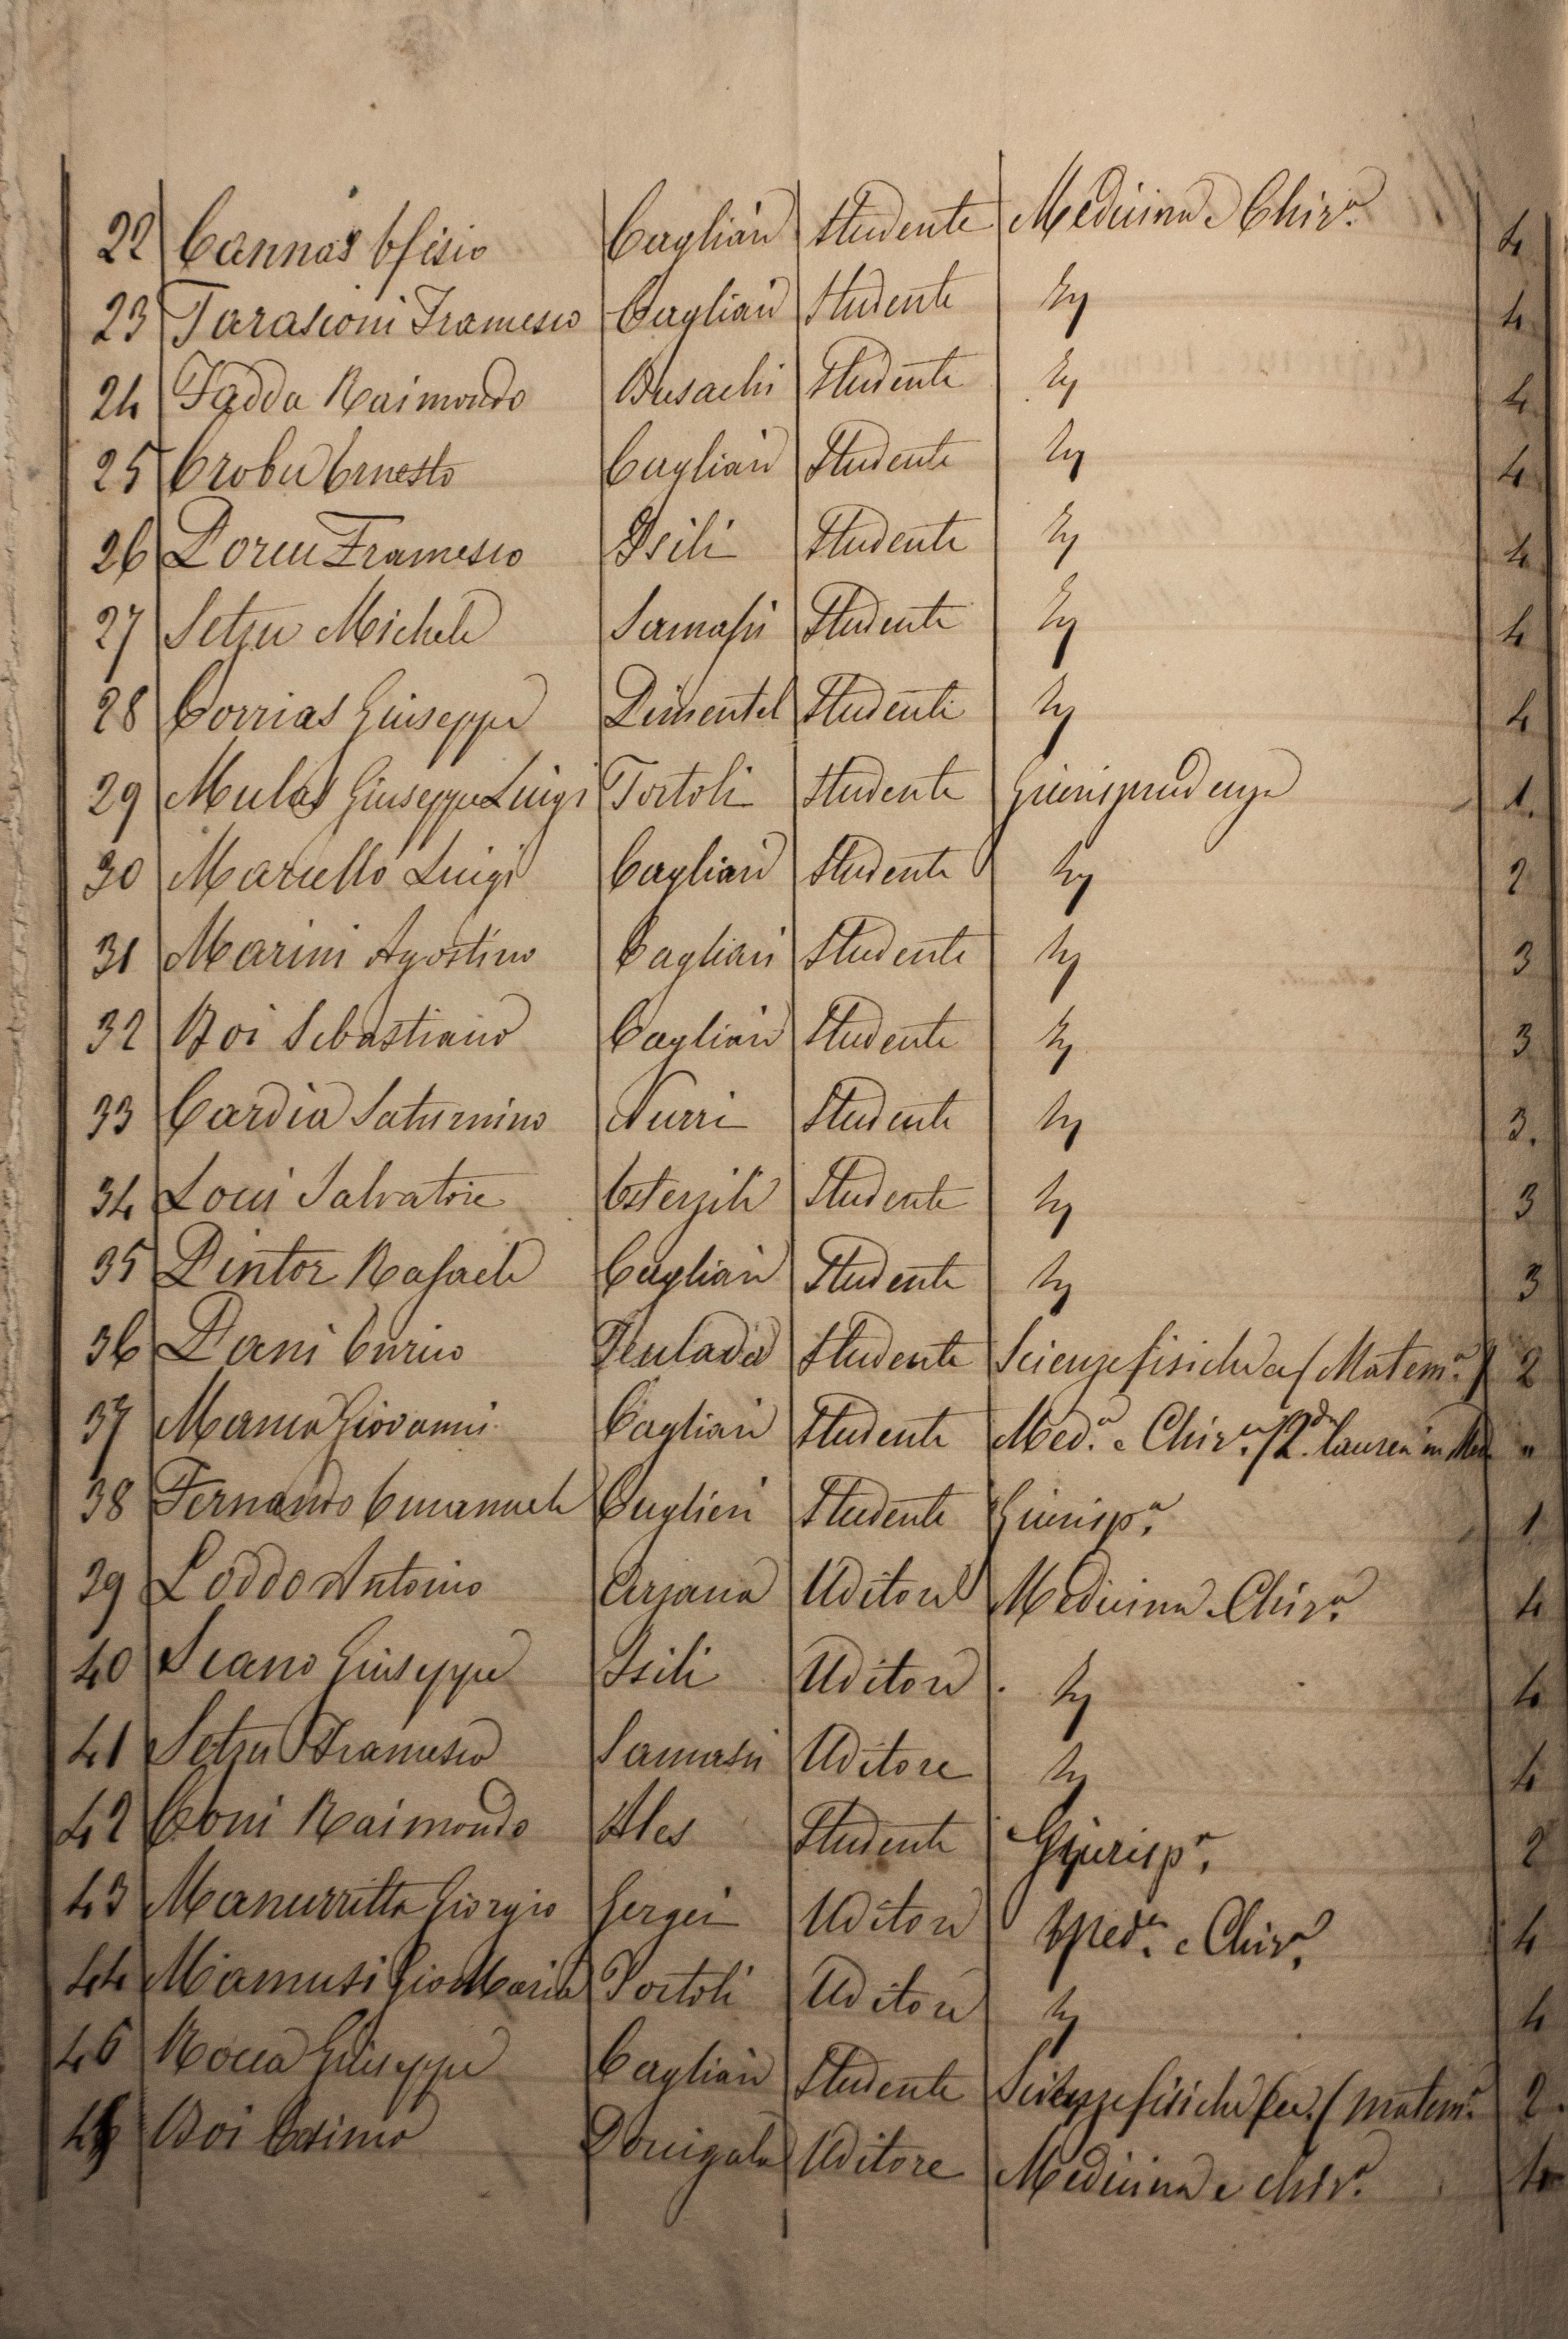 22 Cannas Efisio Cagliari Studente Medicina e Chir.a 4
23 Tarasconi Francesco Cagliari Studente Id 4
24 Fadda Raimondo Busachi Studente Id 4
25 Crobu Ernesto Cagliari Studente Id 4
26 Porcu Francesco Isili Studente Id 4
27 Setzu Michele Samassi Studente Id 4
28 Corrias Giuseppe Pimentel Studente Id 4
29 Mulas Giuseppe Luigi Tortolì Studente Giurisprudenza 1.
30 Marcello Luigi Cagliari Studente Id 2
31 Marini Agostino Cagliari Studente Id 3
32 Boi Sebastiano Cagliari Studente Id 3
33 Cardia Saturnino Nurri Studente Id 3.
34 Loci Salvatore Esterzili Studente Id 3
35 Pintor Rafaele Cagliari Studente Id 3
36 Pani Enrico Teulada Studente Scienze fisiche (Matem.a) 2
37 Manca Giovanni Cagliari Studente Med.a e Chir.a (2.da laurea in Med. "
38 Fernando Emanuele Cuglieri Studente Giurisp.a 1
39 Loddo Antonio Arzana Uditore Medicina e Chir.a 4
40 Scano Giuseppe Isili Uditore Id 4
41 Setzu Francesco Samassi Uditore Id 4
42 Coni Raimondo Ales Studente Giurisp.a 2
43 Manurritta Giorgio Gergei Uditore Med.a e Chir.a 4
44 Mamusi Gio Maria Tortolì Uditore Id 4
45 Rocca Giuseppe Cagliari Studente Scienze fisiche (matem.a 2.
46 Boi Cosimo Donigala Uditore Medicina e chir.a 4